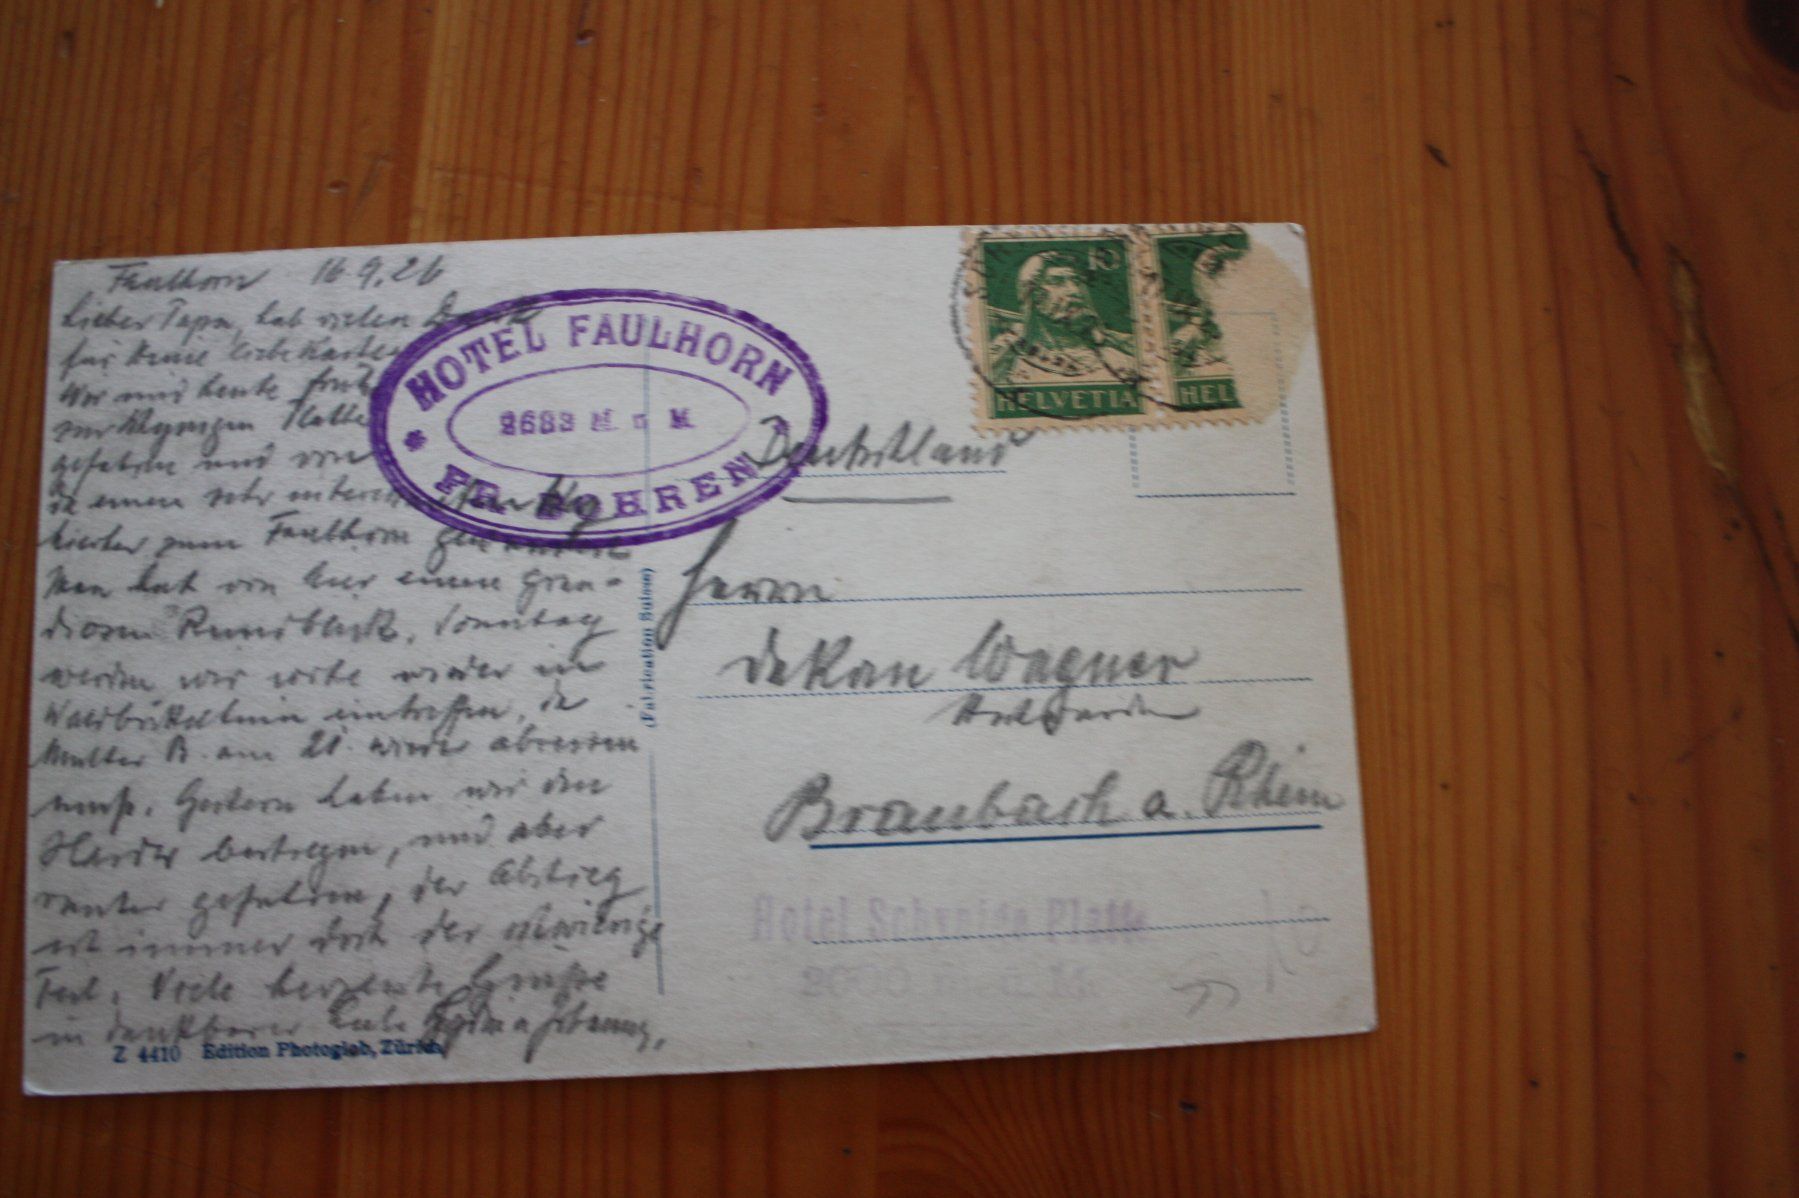 Faulhorn 16.9.26
Lieber Papa, hab vielen Dank
für Deine liebe Karte.
Wir sind heute früh
zur Schynigen Platte
gefahren und von
da einen sehr interessanten Weg
hierher zum Faulhorn gewandert.
Man hat von hier einen gran-
diosen Rundblick. Sonntag
werden wir wohl wieder in
eintreffen, da
Mutter B. am 21. wieder abreisen
muß. Gestern haben wir den
Harder bestiegen, und aber
runter gefahren, der Abstieg
ist immer doch der schwierige
Teil. Viele herzliche Grüße
in dankbarer Liebe Lydia u
Z 4410 Edition Photoglob, Zürich
HOTEL FAULHORN
2683 M ü M
FR. BOHREN
(Fabrication Suisse)
10
HELVETIA
HEL
Deutschland
Herrn
Dekan Wagner
Braubach a. Rhein
Hotel Schynige Platte
2000 m. ü. M.